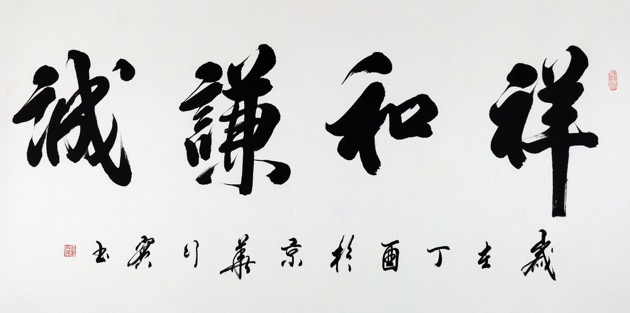 祥和謙誠
歲在丁酉於京華書